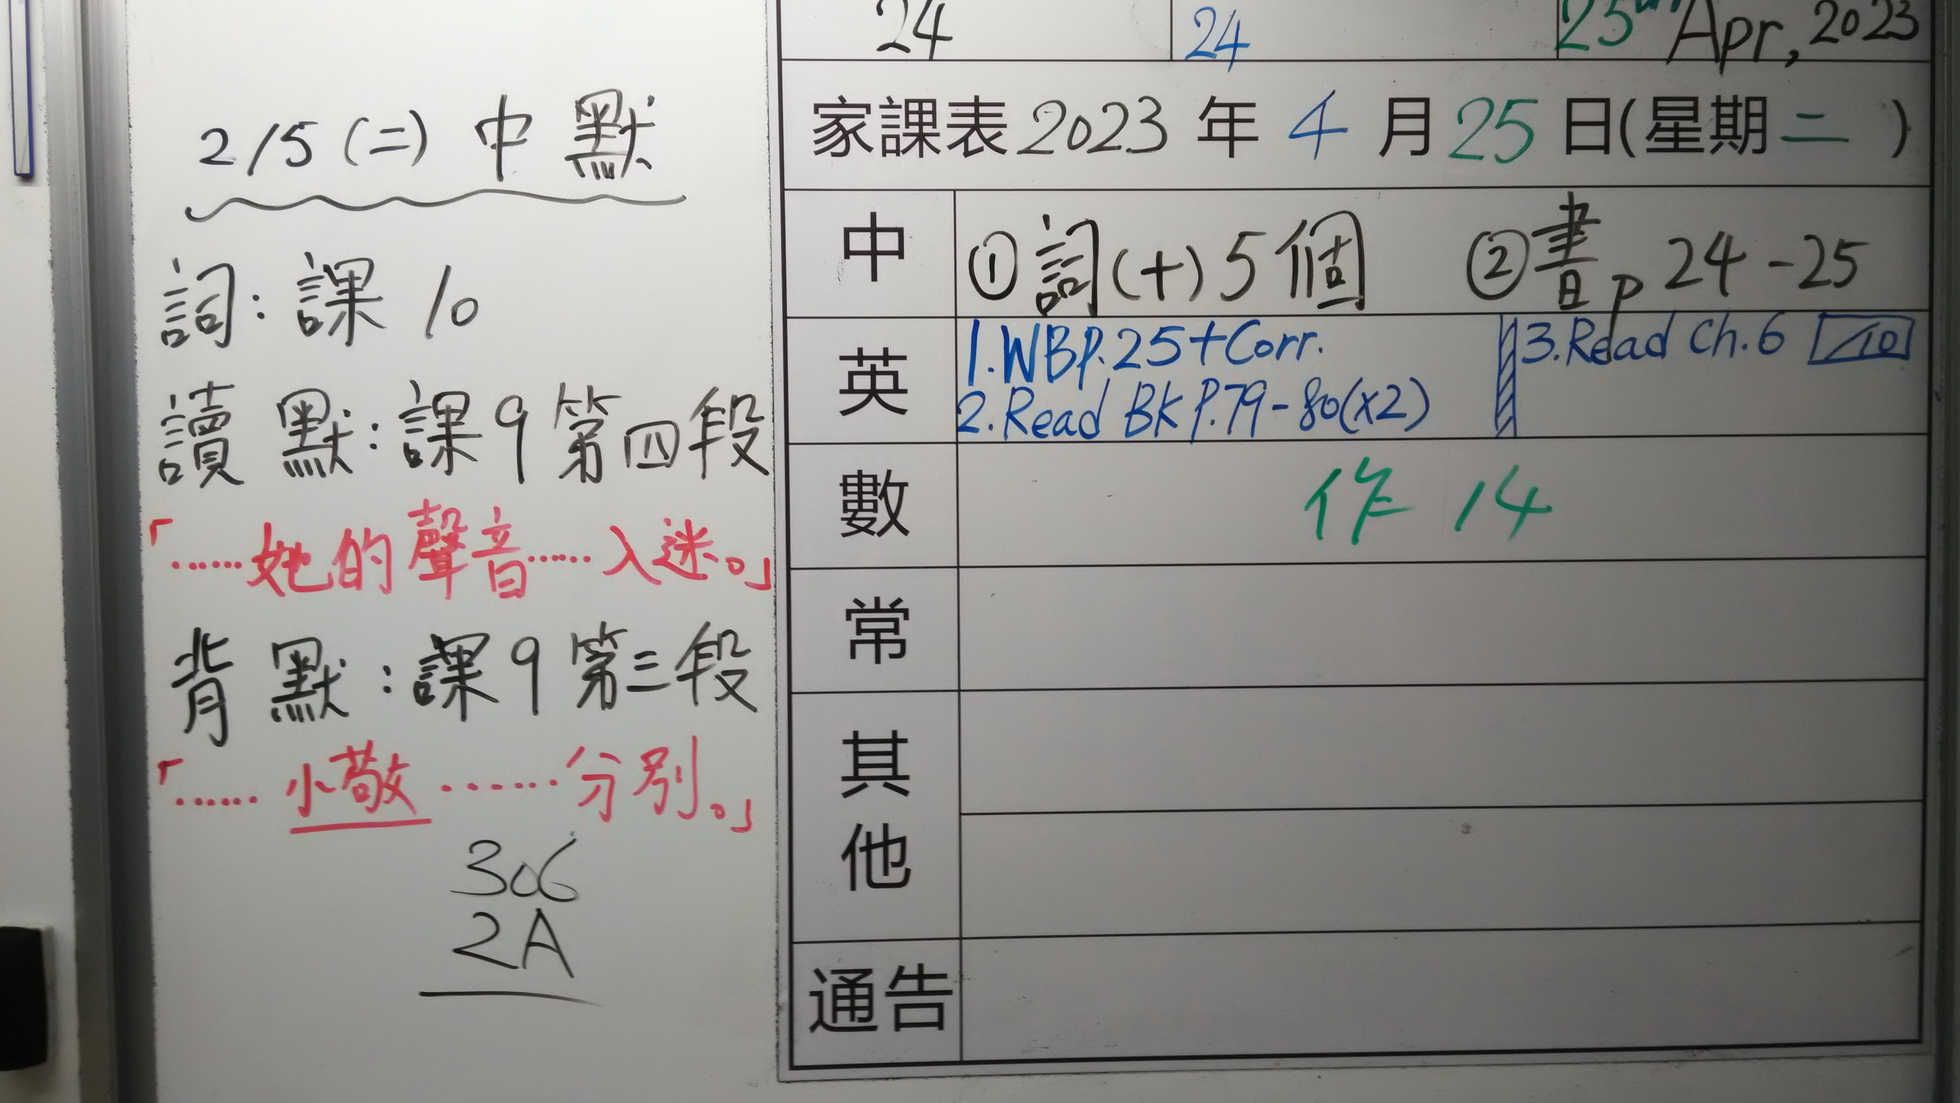 2/5 (二) 中默
詞：課 10
讀默：課9第四段
「……她的聲音……入迷。」
背默：課9第三段
「……小敬……分別。」
306
2A
24 24 25th Apr, 2023
家課表 2023 年 4 月 25 日(星期二)
中 ①詞(十)5個 ②書p 24-25
英 1. WB P.25+Corr. 3. Read Ch.6 /10
2. Read BK P.79-80(x2)
數 作 14
常
其他
通告